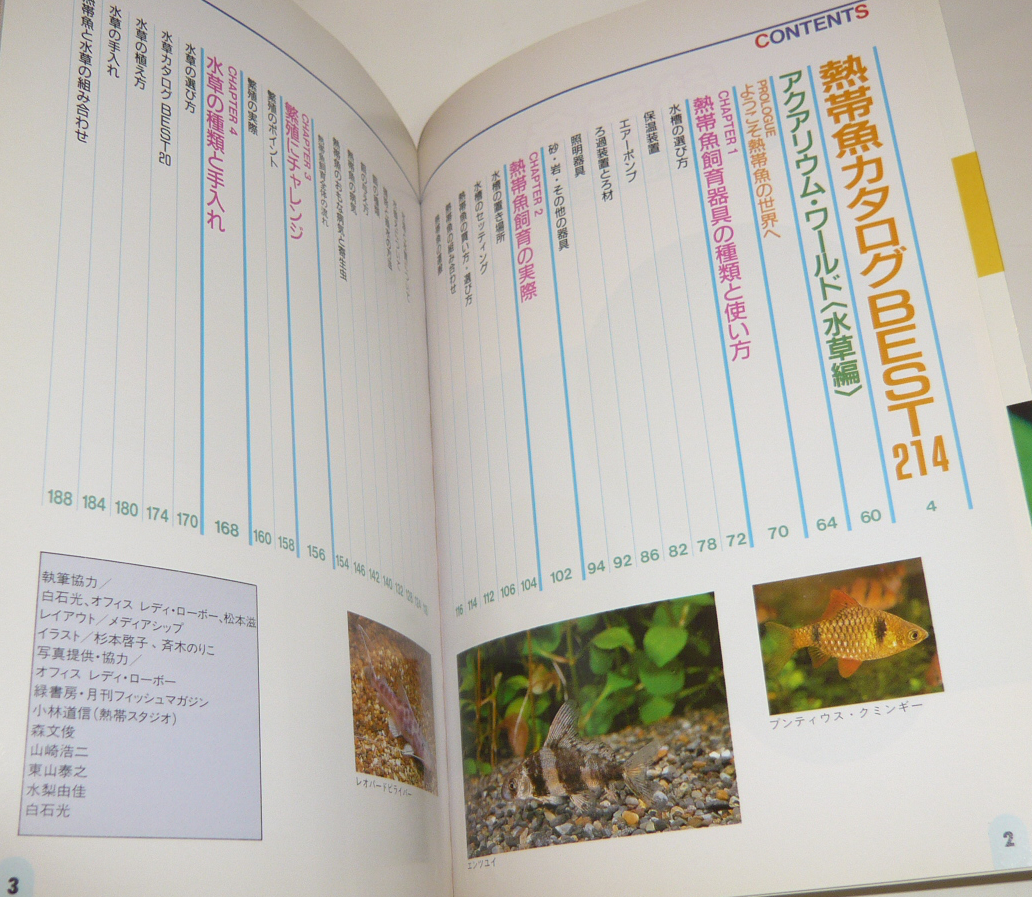 CONTENTS
熱帯魚カタログBEST214
4
アクアリウム・ワールド〈水草編〉
60
PROLOGUE
ようこそ熱帯魚の世界へ
64
CHAPTER 1
熱帯魚飼育器具の種類と使い方
70
水槽の選び方
72
保温装置
78
エアーポンプ
82
ろ過装置とろ材
86
照明器具
92
砂・岩・その他の器具
94
CHAPTER 2
熱帯魚飼育の実際
102
水槽の置き場所
104
水槽のセッティング
106
熱帯魚の買い方・選び方
112
熱帯魚の組み合わせ
114
116
プンティウス・クミンギー
エンツユイ
2
140
142
熱帯魚の病気
146
熱帯魚のおもな病気と寄生虫
154
CHAPTER 3
繁殖にチャレンジ
156
繁殖のポイント
158
繁殖の実際
160
CHAPTER 4
水草の種類と手入れ
168
水草の選び方
170
水草カタログBEST20
174
水草の植え方
180
水草の手入れ
184
熱帯魚と水草の組み合わせ
188
レオパードピライバー
執筆協力／
白石光、オフィス レディ・ローボー、松本滋
レイアウト／メディアシップ
イラスト／杉本啓子、斉木のりこ
写真提供・協力／
オフィス レディ・ローボー
緑書房・月刊フィッシュマガジン
小林道信（熱帯スタジオ）
森文俊
山崎浩二
東山泰之
水梨由佳
白石光
3